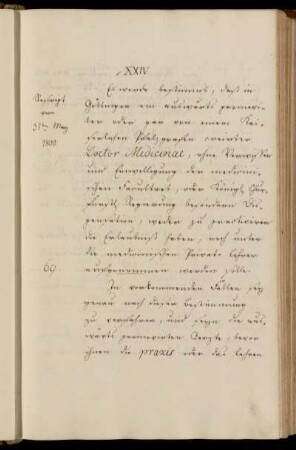 XXIV
Rescript
vom
31ten May
1800.
Es wurde bestimmt, daß in
Göttingen ein auswärts promovir-
ter oder gar von einem Kai-
serlichen Pfalzgrafen creirter
Doctor Medicinae, ohne Vorwissen
und Einwilligung der medicini-
schen Facultaet, oder Königl. Chur-
fürstl. Regierung besondern Dis-
pensation, weder zu practiciren
die Erlaubniß haben, noch unter
die medicinischen Privat-Lehrer
69. aufgenommen werden solle.
In vorkommenden Fällen sey
genau nach dieser Bestimmung
zu verfahren, und seyn die aus-
wärts promovirten Aerzte, bevor
ihnen die praxis oder das Lehren